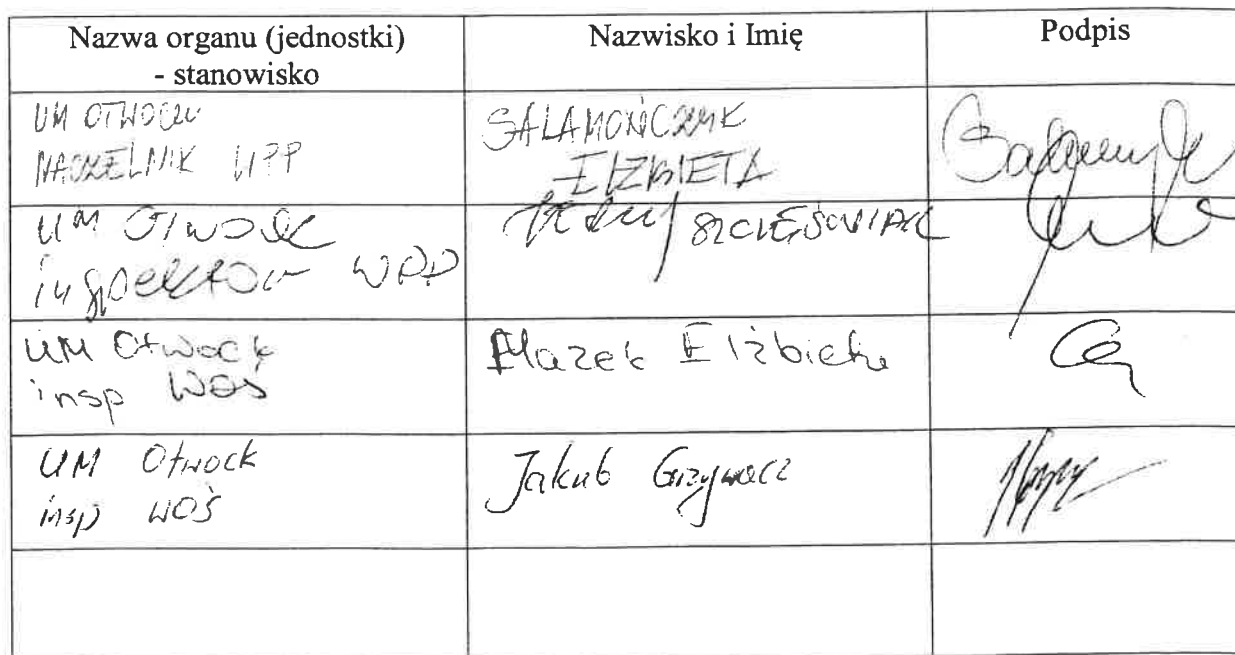 Nazwa organu (jednostki)
- stanowisko
Nazwisko i Imię
Podpis
UM OTWOCKU
NACZELNIK WPP
SALAMOŃCZYK
ELŻBIETA
UM Otwock
inspektor WPP
SZCZEŚNIAK
UM Otwock
insp WOŚ
Mazek Elżbieta
UM Otwock
insp WOŚ
Jakub Grzywacz